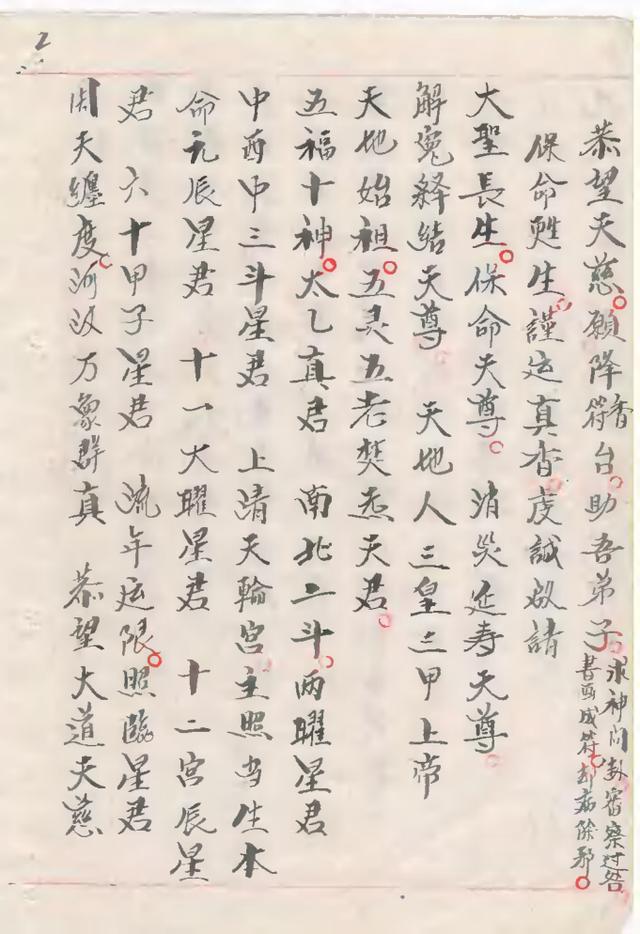 2
恭望天慈。願降香符台。助吾弟子。求神问卦審察过咎
書画成符。却病除邪。
保命甦生。謹运真香虔誠啟請
大聖長生。保命天尊。消災延寿天尊。
解冤释结天尊 天地人三皇三甲上帝
天地始祖。五灵五老焚炁天君。
五福十神。太乙真君 南北二斗。两曜星君
中酉中三斗星君 上清天輪宫主照当生本
命元辰星君 十一大曜星君 十二宫辰星
君 六十甲子星君 流年运限。照臨星君
周天纏度。河汉万象群真 恭望大道天慈